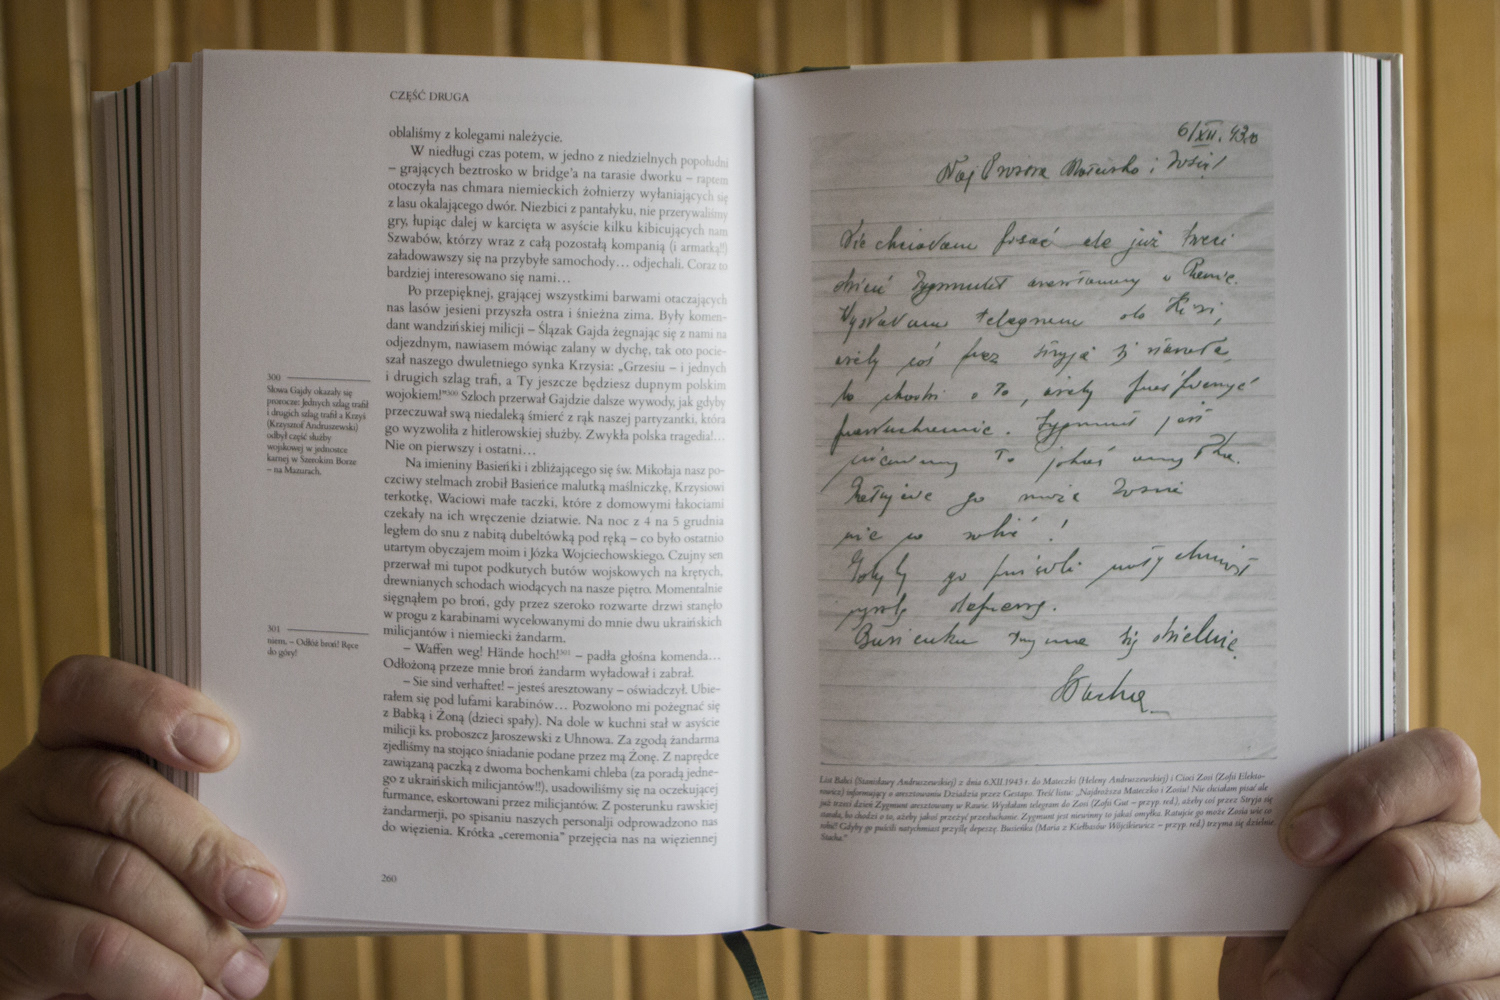 CZĘŚĆ DRUGA
oblaliśmy z kolegami należycie.
W niedługi czas potem, w jedno z niedzielnych popołudni
– grających beztrosko w bridge'a na tarasie dworku – raptem
otoczyła nas chmara niemieckich żołnierzy wyłaniających się
z lasu okalającego dwór. Niezbici z pantałyku, nie przerywaliśmy
gry, łupiąc dalej w karcięta w asyście kilku kibicujących nam
Szwabów, którzy wraz z całą pozostałą kompanią (i armatką!!)
załadowawszy się na przybyłe samochody… odjechali. Coraz to
bardziej interesowano się nami…
Po przepięknej, grającej wszystkimi barwami otaczających
nas lasów jesieni przyszła ostra i śnieżna zima. Były komen-
dant wandzińskiej milicji – Ślązak Gajda żegnając się z nami na
odjezdnym, nawiasem mówiąc zalany w dychę, tak oto pocie-
szał naszego dwuletniego synka Krzysia: „Grzesiu – i jednych
i drugich szlag trafi, a Ty jeszcze będziesz dupnym polskim
wojokiem!"³⁰⁰ Szloch przerwał Gajdzie dalsze wywody, jak gdyby
przeczuwał swą niedaleką śmierć z rąk naszej partyzantki, która
go wyzwoliła z hitlerowskiej służby. Zwykła polska tragedia!…
Nie on pierwszy i ostatni…
Na imieniny Basieńki i zbliżającego się św. Mikołaja nasz po-
czciwy stelmach zrobił Basieńce malutką maślniczkę, Krzysiowi
terkotkę, Waciowi małe taczki, które z domowymi łakociami
czekały na ich wręczenie dziatwie. Na noc z 4 na 5 grudnia
ległem do snu z nabitą dubeltówką pod ręką – co było ostatnio
utartym obyczajem moim i Józka Wojciechowskiego. Czujny sen
przerwał mi tupot podkutych butów wojskowych na krętych,
drewnianych schodach wiodących na nasze piętro. Momentalnie
sięgnąłem po broń, gdy przez szeroko rozwarte drzwi stanęło
w progu z karabinami wycelowanymi do mnie dwu ukraińskich
milicjantów i niemiecki żandarm.
– Waffen weg! Hände hoch!³⁰¹ – padła głośna komenda…
Odłożoną przeze mnie broń żandarm wyładował i zabrał.
– Sie sind verhaftet! – jesteś aresztowany – oświadczył. Ubie-
rałem się pod lufami karabinów… Pozwolono mi pożegnać się
z Babką i Żoną (dzieci spały). Na dole w kuchni stał w asyście
milicji ks. proboszcz Jaroszewski z Uhnowa. Za zgodą żandarma
zjedliśmy na stojąco śniadanie podane przez mą Żonę. Z naprędce
zawiązaną paczką z dwoma bochenkami chleba (za poradą jedne-
go z ukraińskich milicjantów!!), usadowiliśmy na oczekującej
furmance, eskortowani przez milicjantów. Z posterunku rawskiej
żandarmerji, po spisaniu naszych personalji odprowadzono nas
do więzienia. Krótka „ceremonia" przejęcia nas na więziennej
300
Słowa Gajdy okazały się
prorocze: Jednych szlag trafił
i drugich szlag trafił a Krzyś
(Krzysztof Andruszewski)
odbył część służby
wojskowej w jednostce
karnej w Szerokim Borze
– na Mazurach.
301
niem. – Odłóż broń! Ręce
do góry!
260
6/XII. 43
Najdroższa Mateczko i Zosiu!
Nie chciałam pisać ale już trzeci
dzień Zygmunt aresztowany w Rawie.
Wysłałam telegram do Zosi,
ażeby coś przez Stryja się starała,
bo chodzi o to, ażeby
przesłuchanie. Zygmunt jest
niewinny to jakaś omyłka.
Ratujcie go może Zosia
wie co robić!
Gdyby go puścili natychmiast
przyślę depeszę.
Basieńka trzyma się dzielnie.
Stacha
List Babci (Stanisławy Andruszewskiej) z dnia 6.XII.1943 r. do Mateczki (Heleny Andruszewskiej) i Cioci Zosi (Zofii Elekto-
rowicz) informujący o aresztowaniu Dziadzia przez Gestapo. Treść listu: „Najdroższa Mateczko i Zosiu! Nie chciałam pisać ale
już trzeci dzień Zygmunt aresztowany w Rawie. Wysłałam telegram do Zosi (Zofii Gut – przyp. red.), ażeby coś przez Stryja się
starała, bo chodzi o to, ażeby jakoś przeżyć przesłuchanie. Zygmunt jest niewinny to jakaś omyłka. Ratujcie go może Zosia wie co
robić! Gdyby go puścili natychmiast przyślę depeszę. Basieńka (Maria z Kiełbasów Wójcikiewicz – przyp. red.) trzyma się dzielnie.
Stacha."